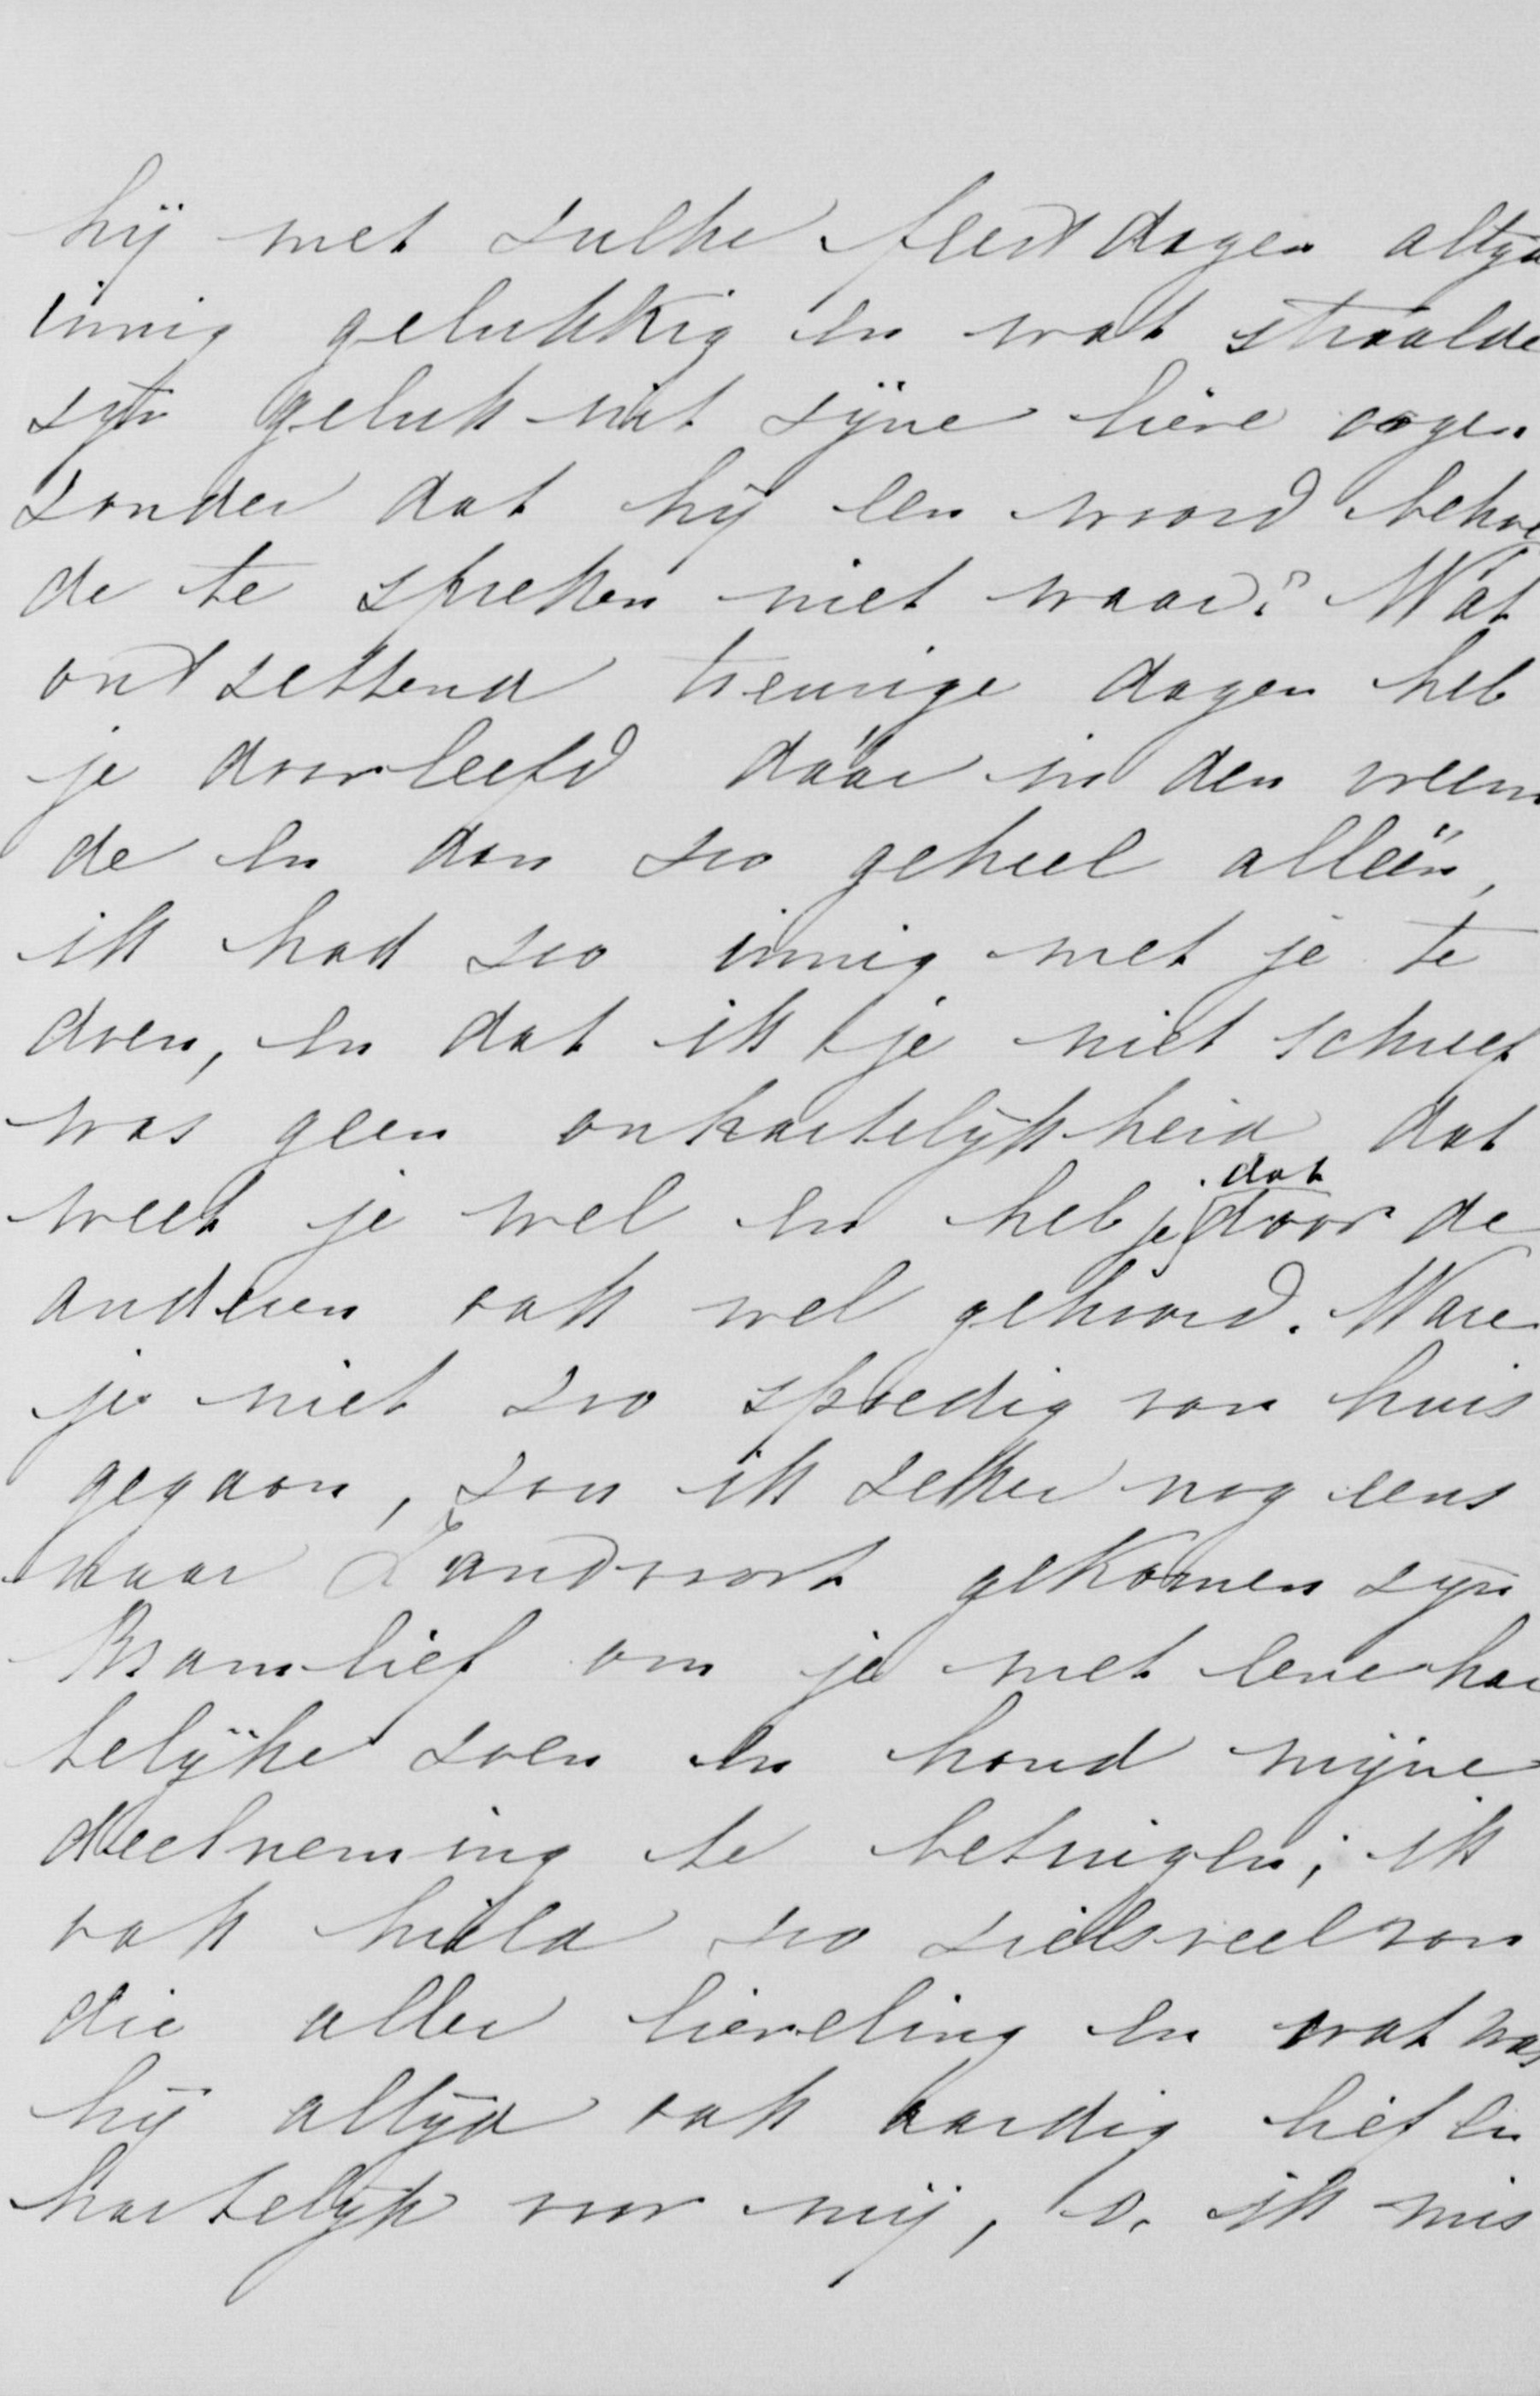 hij met zulke feestdagen altijd
innig gelukkig en wat straalde
zijn geluk uit zijne lieve oogen
zonder dat hij een woord behoef
de te spreken niet waar? Wat
ontzettend treurige dagen heb
je doorleefd dáár in den vreem
de en dan zoo geheel alleen,
ik had zoo innig met je te
doen, en dat ik je niet schreef
was geen onhartelijkheid dat
weet je wel en heb je dat door de
anderen ook wel gehoord. Ware
je niet zoo spoedig van huis
gegaan, zou ik zeker nog eens
naar Zandvoort gekomen zijn
Bramlief om je met eene har
telijke zoen en hand mijne
deelneming te betuigen; ik
ook hield zoo zielsveel van
die aller lieveling en wat was
hij altijd ook aardig lief en
hartelijk voor mij, o. ik mis